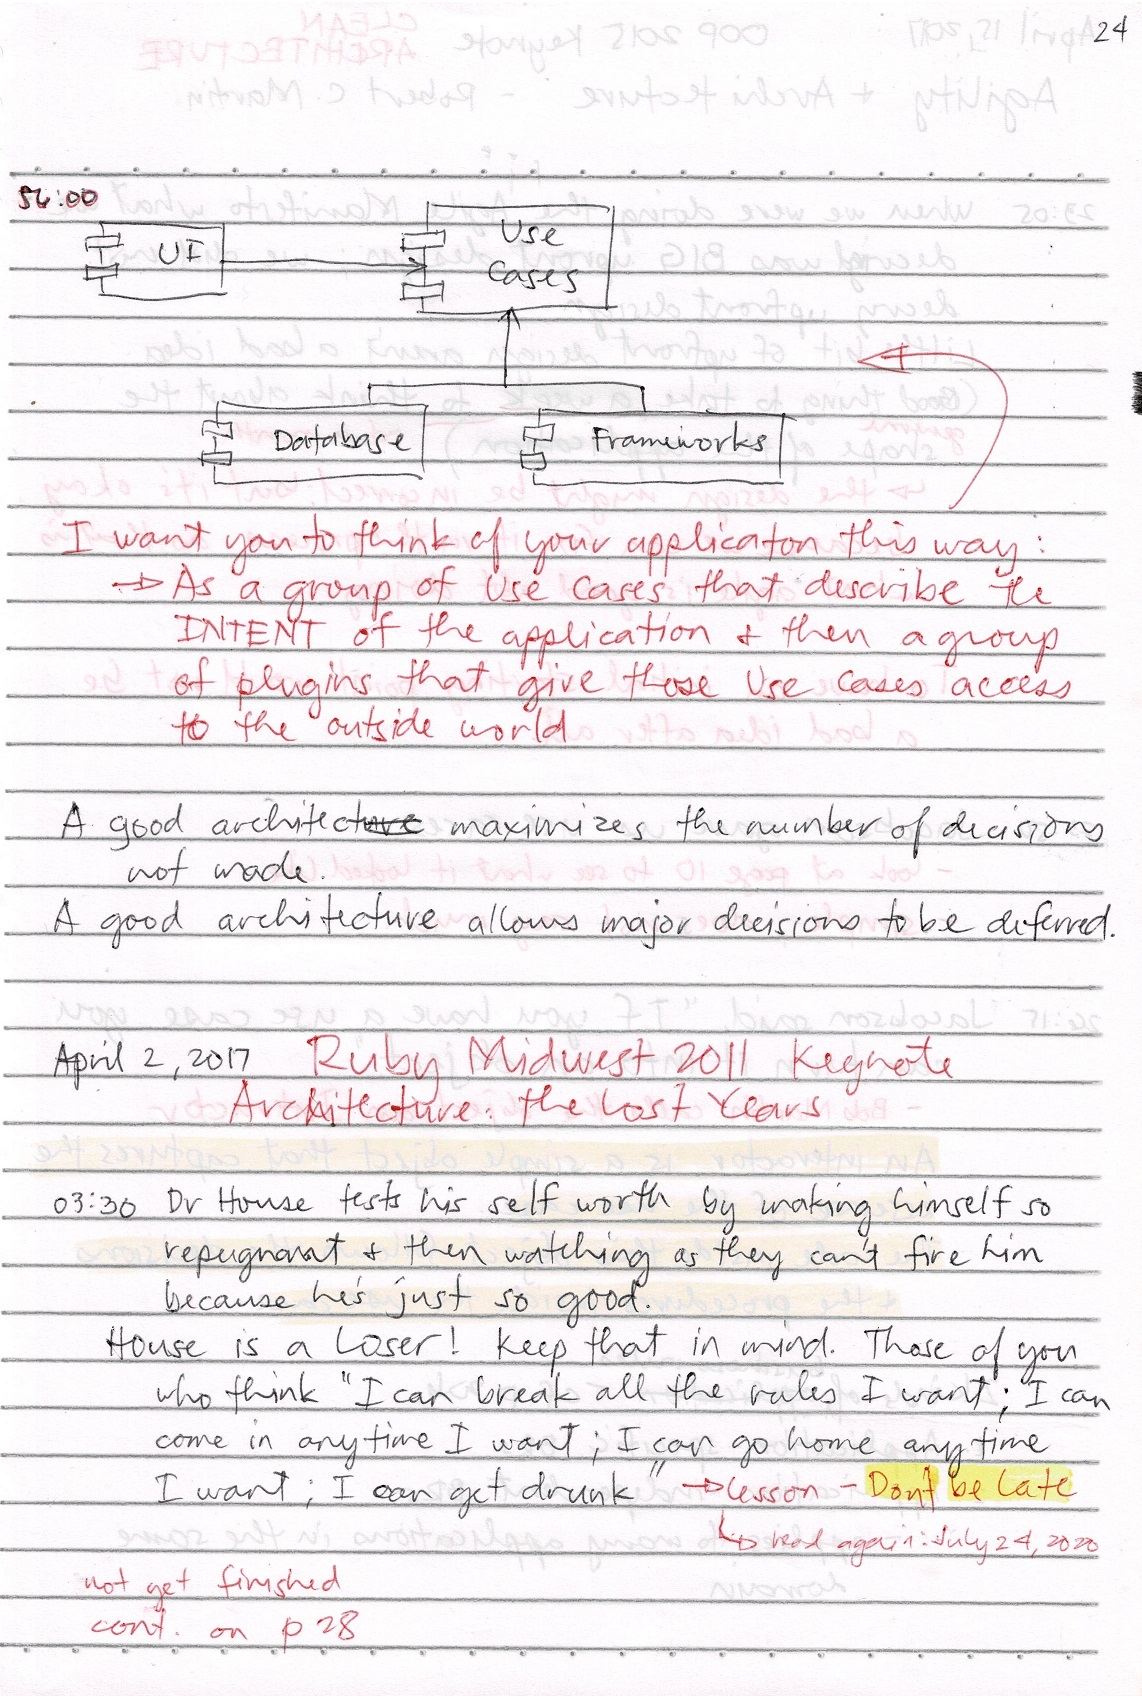 24
56:00
UI
Use
Cases
Database
Frameworks
I want you to think of your applicaton this way:
→ As a group of Use Cases that describe the
INTENT of the application & then a group
of plugins that give those Use Cases access
to the outside world
A good architecture maximizes the number of decisions
not made.
A good architecture allows major decisions to be deferred.
April 2, 2017 Ruby Midwest 2011 Keynote
Architecture: the Lost Years
03:30 Dr House tests his self worth by making himself so
repugnant & then watching as they can't fire him
because he's just so good.
House is a Loser! Keep that in mind. Those of you
who think "I can break all the rules I want; I can
come in anytime I want; I can go home anytime
I want; I can get drunk" → Lesson - Don't be Late
↳ read again: July 24, 2020
not yet finished
cont. on p 28